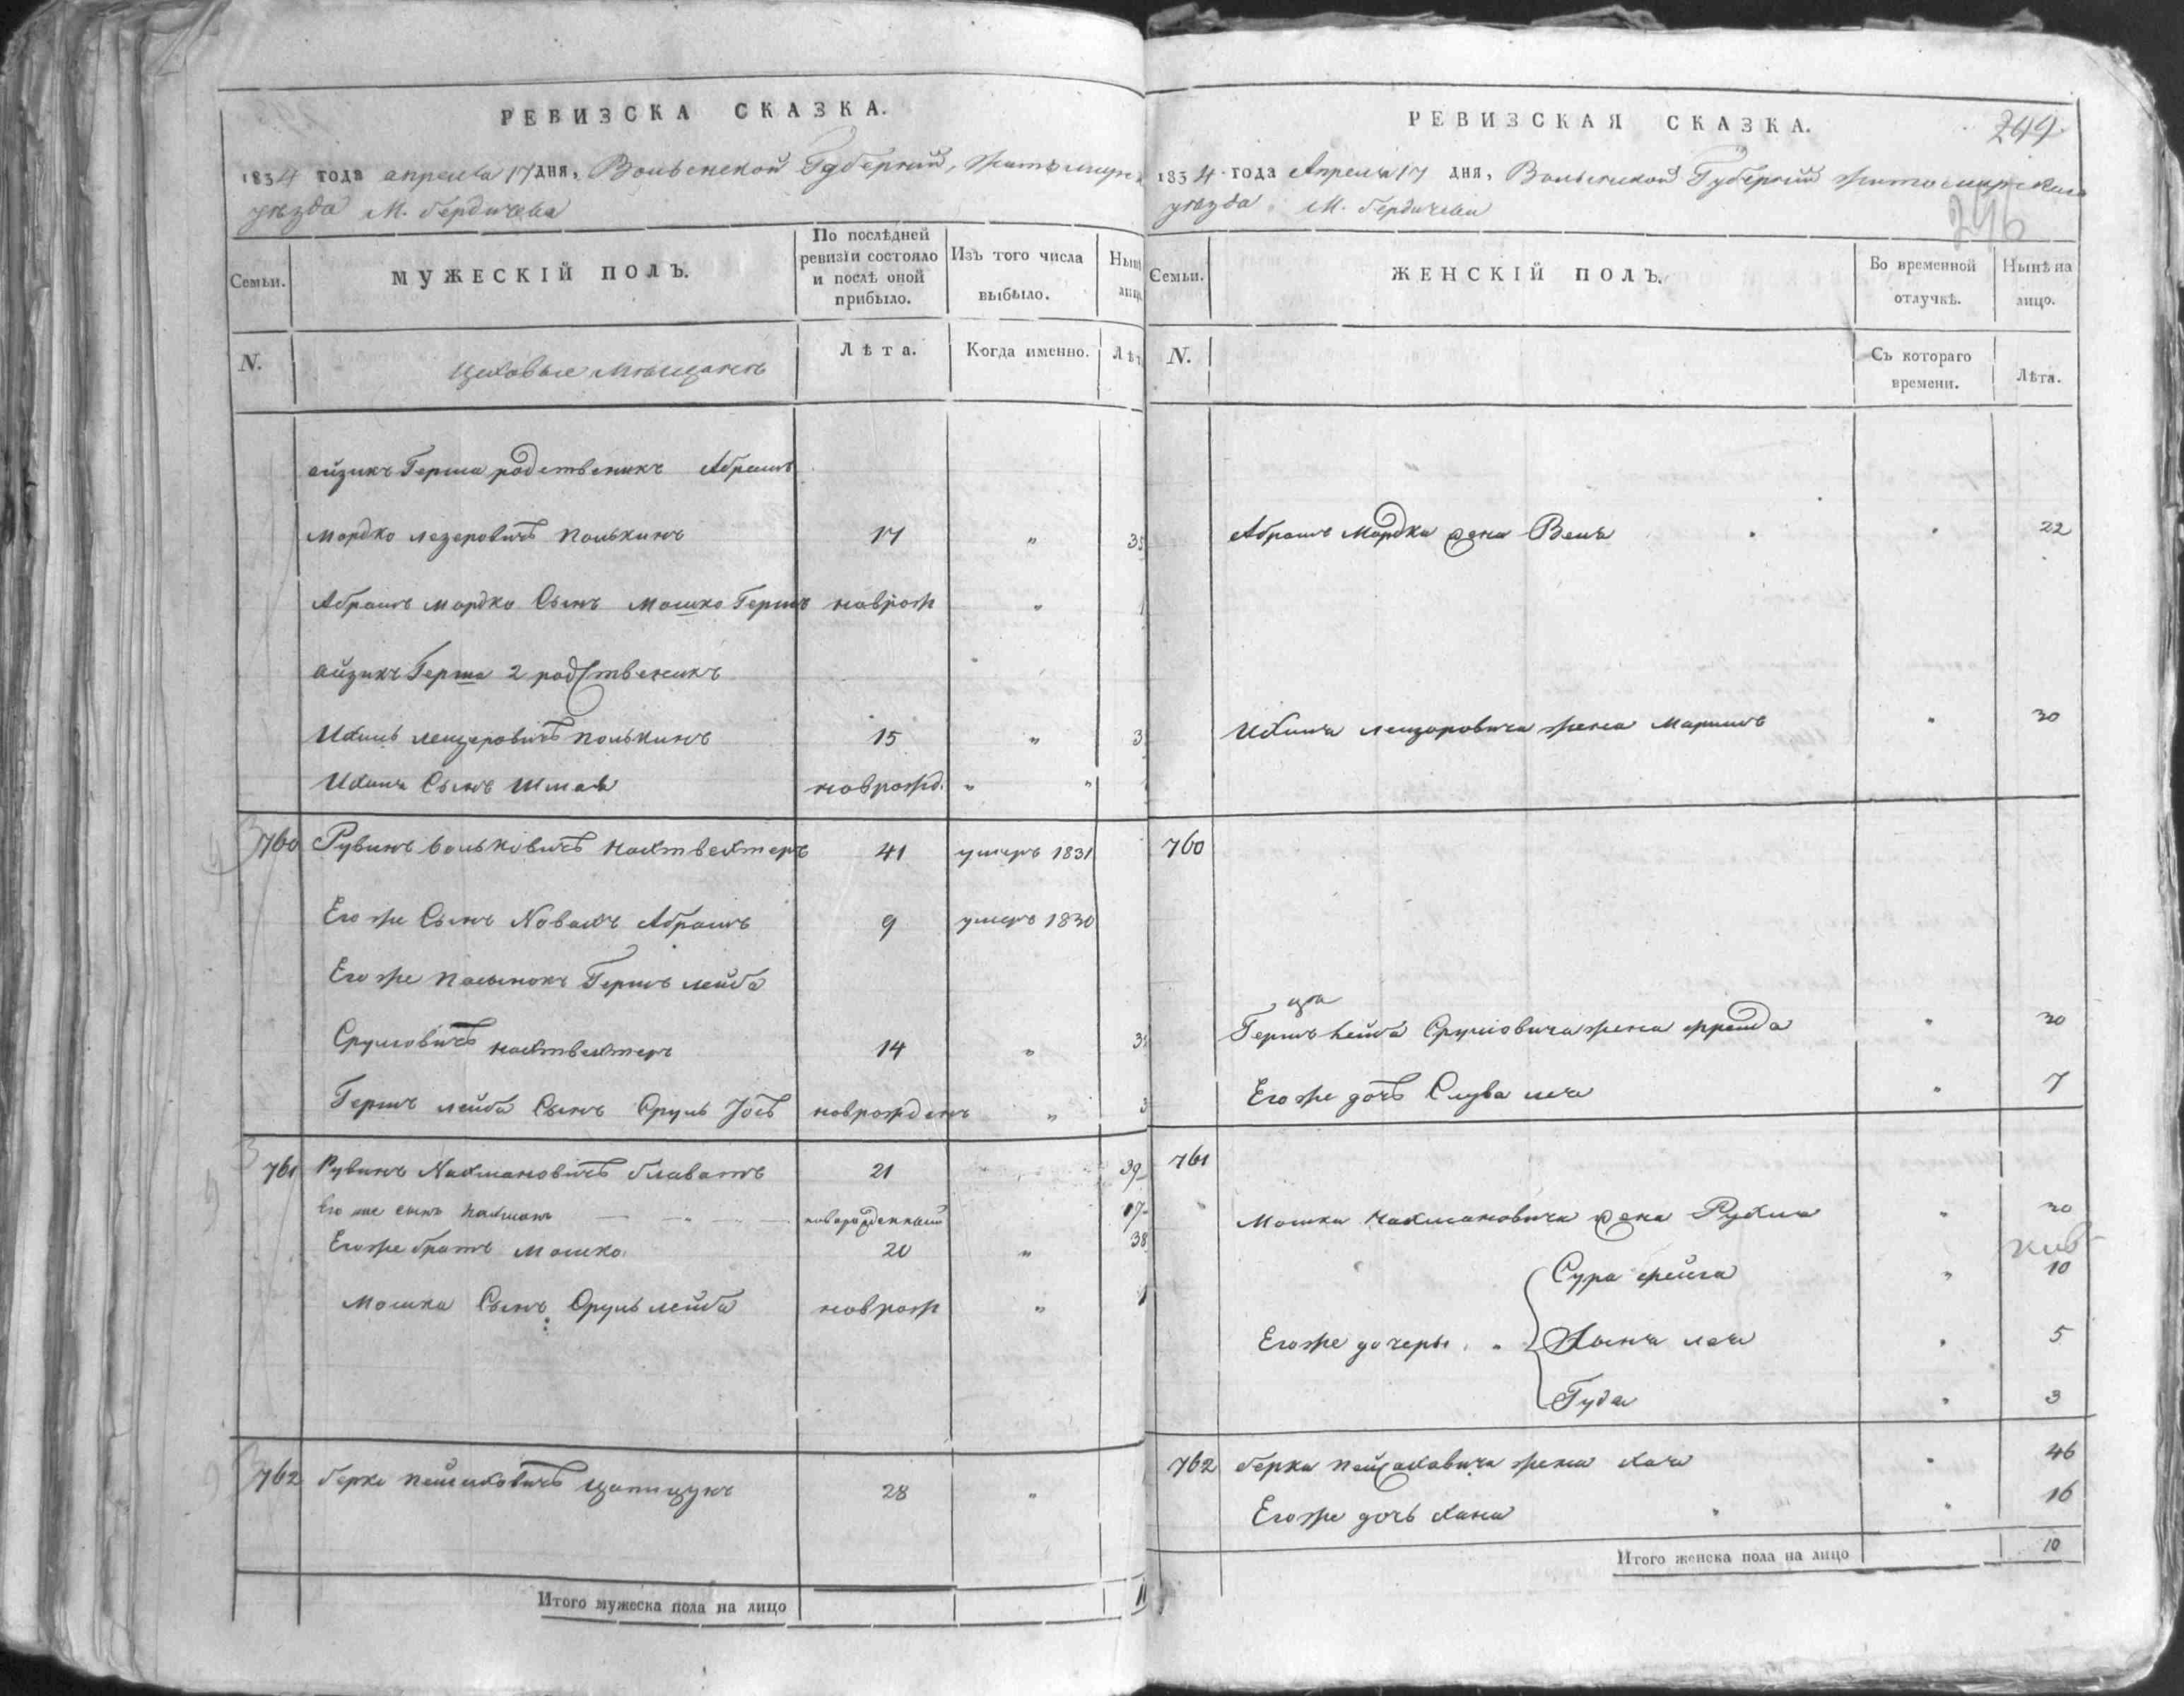 РЕВИЗСКА СКАЗКА.
1834 года апреля 17 дня, Волынской Губернии, Житомирск
уезда М. Бердичева
Семьи.
МУЖЕСКІЙ ПОЛЪ.
По послѣдней
ревизіи состояло
и послѣ оной
прибыло.
Изъ того числа
выбыло.
Нынѣ
лицо
N.
Цеховые мещане
Лѣта.
Когда именно.
Лѣт
айзикъ Герша родственикъ Абрамъ
Мордко лезеровичъ Полькинъ 17 " 35
Абрамъ мордко Сынъ Мошко Гершъ новрож " 1
айзикъ Герша 2 родственикъ
Ихиль лейзеровичъ Полькинъ 15 " 3
Ихиля Сынъ Шмая новрожд. " "
760 Рувинъ вольковичъ нахтвехтеръ 41 умеръ 1831
Его же Сынъ Новахъ Абрамъ 9 умеръ 1830
Его же пасынокъ Гершъ лейба
Срулговичъ нахтвехтеръ 14 " 3
Гершъ лейба Сынъ Сруль Іосъ новрожденъ " 3
761 Рувинъ Нахмановичъ блаватъ 21 39
Его же сынъ Нахманъ новорожденный 17
Его же братъ мошко 20 " 38
Мошка Сынъ Сруль лейба новрож " 1
762 берко пейсаховичъ 28 "
Итого мужеска пола на лицо 11
РЕВИЗСКАЯ СКАЗКА.
249.
1834 года Апреля 17 дня, Волынской Губернии житомирскаго
уезда М. Бердичева
246
Семьи.
ЖЕНСКІЙ ПОЛЪ.
Во временной
отлучкѣ.
Нынѣ на
лицо.
N.
Съ котораго
времени.
Лѣта.
Абрамъ Мордка жена Веля " 22
Ихиля лейзоровича жена Маримъ " 30
760
Гершъ Лейба Срулговича жена фрейда " 30
Его же дочъ Слува леа " 7
761
Мошки Нахмановича жена Рухля " 30
Сура фейга " 10
Его же дочеры " Хына леа " 5
Гуда " 3
762 берка пейсаховича жена хаа " 46
Его же дочь хана " 16
Итого женска пола на лицо 10